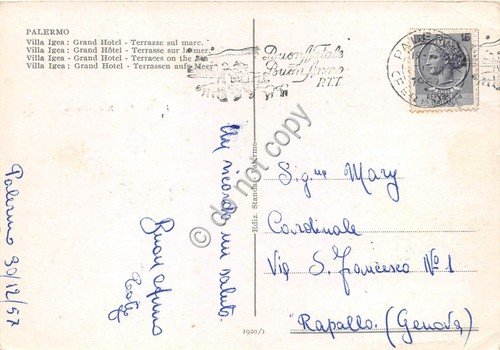 PALERMO
Villa Igea: Grand Hotel - Terrazze sul mare.
Villa Igea: Grand Hôtel - Terrasse sur la mer.
Villa Igea - Grand Hotel - Terraces on the Sea
Villa Igea: Grand Hotel - Terrassen aufs Meer
Buon Natale
Buon Anno
PTT
PALERMO
15
Palermo 30/12/57
Un ricordo un saluto.
Buon anno
Ediz. Standa - Palermo
1920/1
do not copy
Sig.na Mary
Cardinale
Via S. Francesco N° 1
Rapallo (Genova)